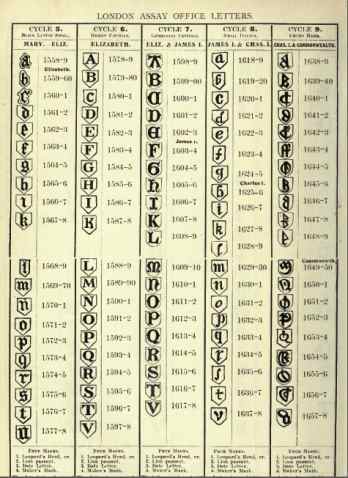 LONDON ASSAY OFFICE LETTERS.
CYCLE 5. CYCLE 6. CYCLE 7. CYCLE 8. CYCLE 9.
MARY. ELIZ. ELIZABETH. ELIZ. & JAMES I. JAMES I. & CHAS. I. CHAS. I. & COMMONWEALTH.
a 1558-9 A 1578-9 A 1598-9 a 1618-9 a 1638-9
Elizabeth.
b 1559-60 B 1579-80 B 1599-00 b 1619-20 b 1639-40
c 1560-1 C 1580-1 C 1600-1 c 1620-1 c 1640-1
d 1561-2 D 1581-2 D 1601-2 d 1621-2 d 1641-2
e 1562-3 E 1582-3 E 1602-3 e 1622-3 e 1642-3
James I.
f 1563-4 F 1583-4 F 1603-4 f 1623-4 f 1643-4
g 1564-5 G 1584-5 G 1604-5 g 1624-5 g 1644-5
Charles I.
h 1565-6 H 1585-6 h 1605-6 h 1625-6 h 1645-6
i 1566-7 I 1586-7 I 1606-7 i 1626-7 i 1646-7
k 1567-8 K 1587-8 K 1607-8 k 1627-8 k 1647-8
L 1608-9 l 1628-9 1648-9
Commonwealth.
l 1568-9 L 1588-9 M 1609-10 m 1629-30 1649-50
m 1569-70 M 1589-90 N 1610-1 n 1630-1 1650-1
n 1570-1 N 1590-1 O 1611-2 o 1631-2 1651-2
o 1571-2 O 1591-2 P 1612-3 p 1632-3 1652-3
p 1572-3 P 1592-3 Q 1613-4 q 1633-4 1653-4
q 1573-4 Q 1593-4 R 1614-5 r 1634-5 1654-5
r 1574-5 R 1594-5 S 1615-6 s 1635-6 1655-6
s 1575-6 S 1595-6 T 1616-7 t 1636-7 1656-7
t 1576-7 T 1596-7 V 1617-8 v 1637-8 1657-8
u 1577-8 V 1597-8
FOUR MARKS. FOUR MARKS. FOUR MARKS. FOUR MARKS. FOUR MARKS.
1. Leopard's Head, cr. 1. Leopard's Head, cr. 1. Leopard's Head, cr. 1. Leopard's Head, cr. 1. Leopard's Head, cr.
2. Lion passant. 2. Lion passant. 2. Lion passant. 2. Lion passant. 2. Lion passant.
3. Date Letter. 3. Date Letter. 3. Date Letter. 3. Date Letter. 3. Date Letter.
4. Maker's Mark. 4. Maker's Mark. 4. Maker's Mark. 4. Maker's Mark. 4. Maker's Mark.